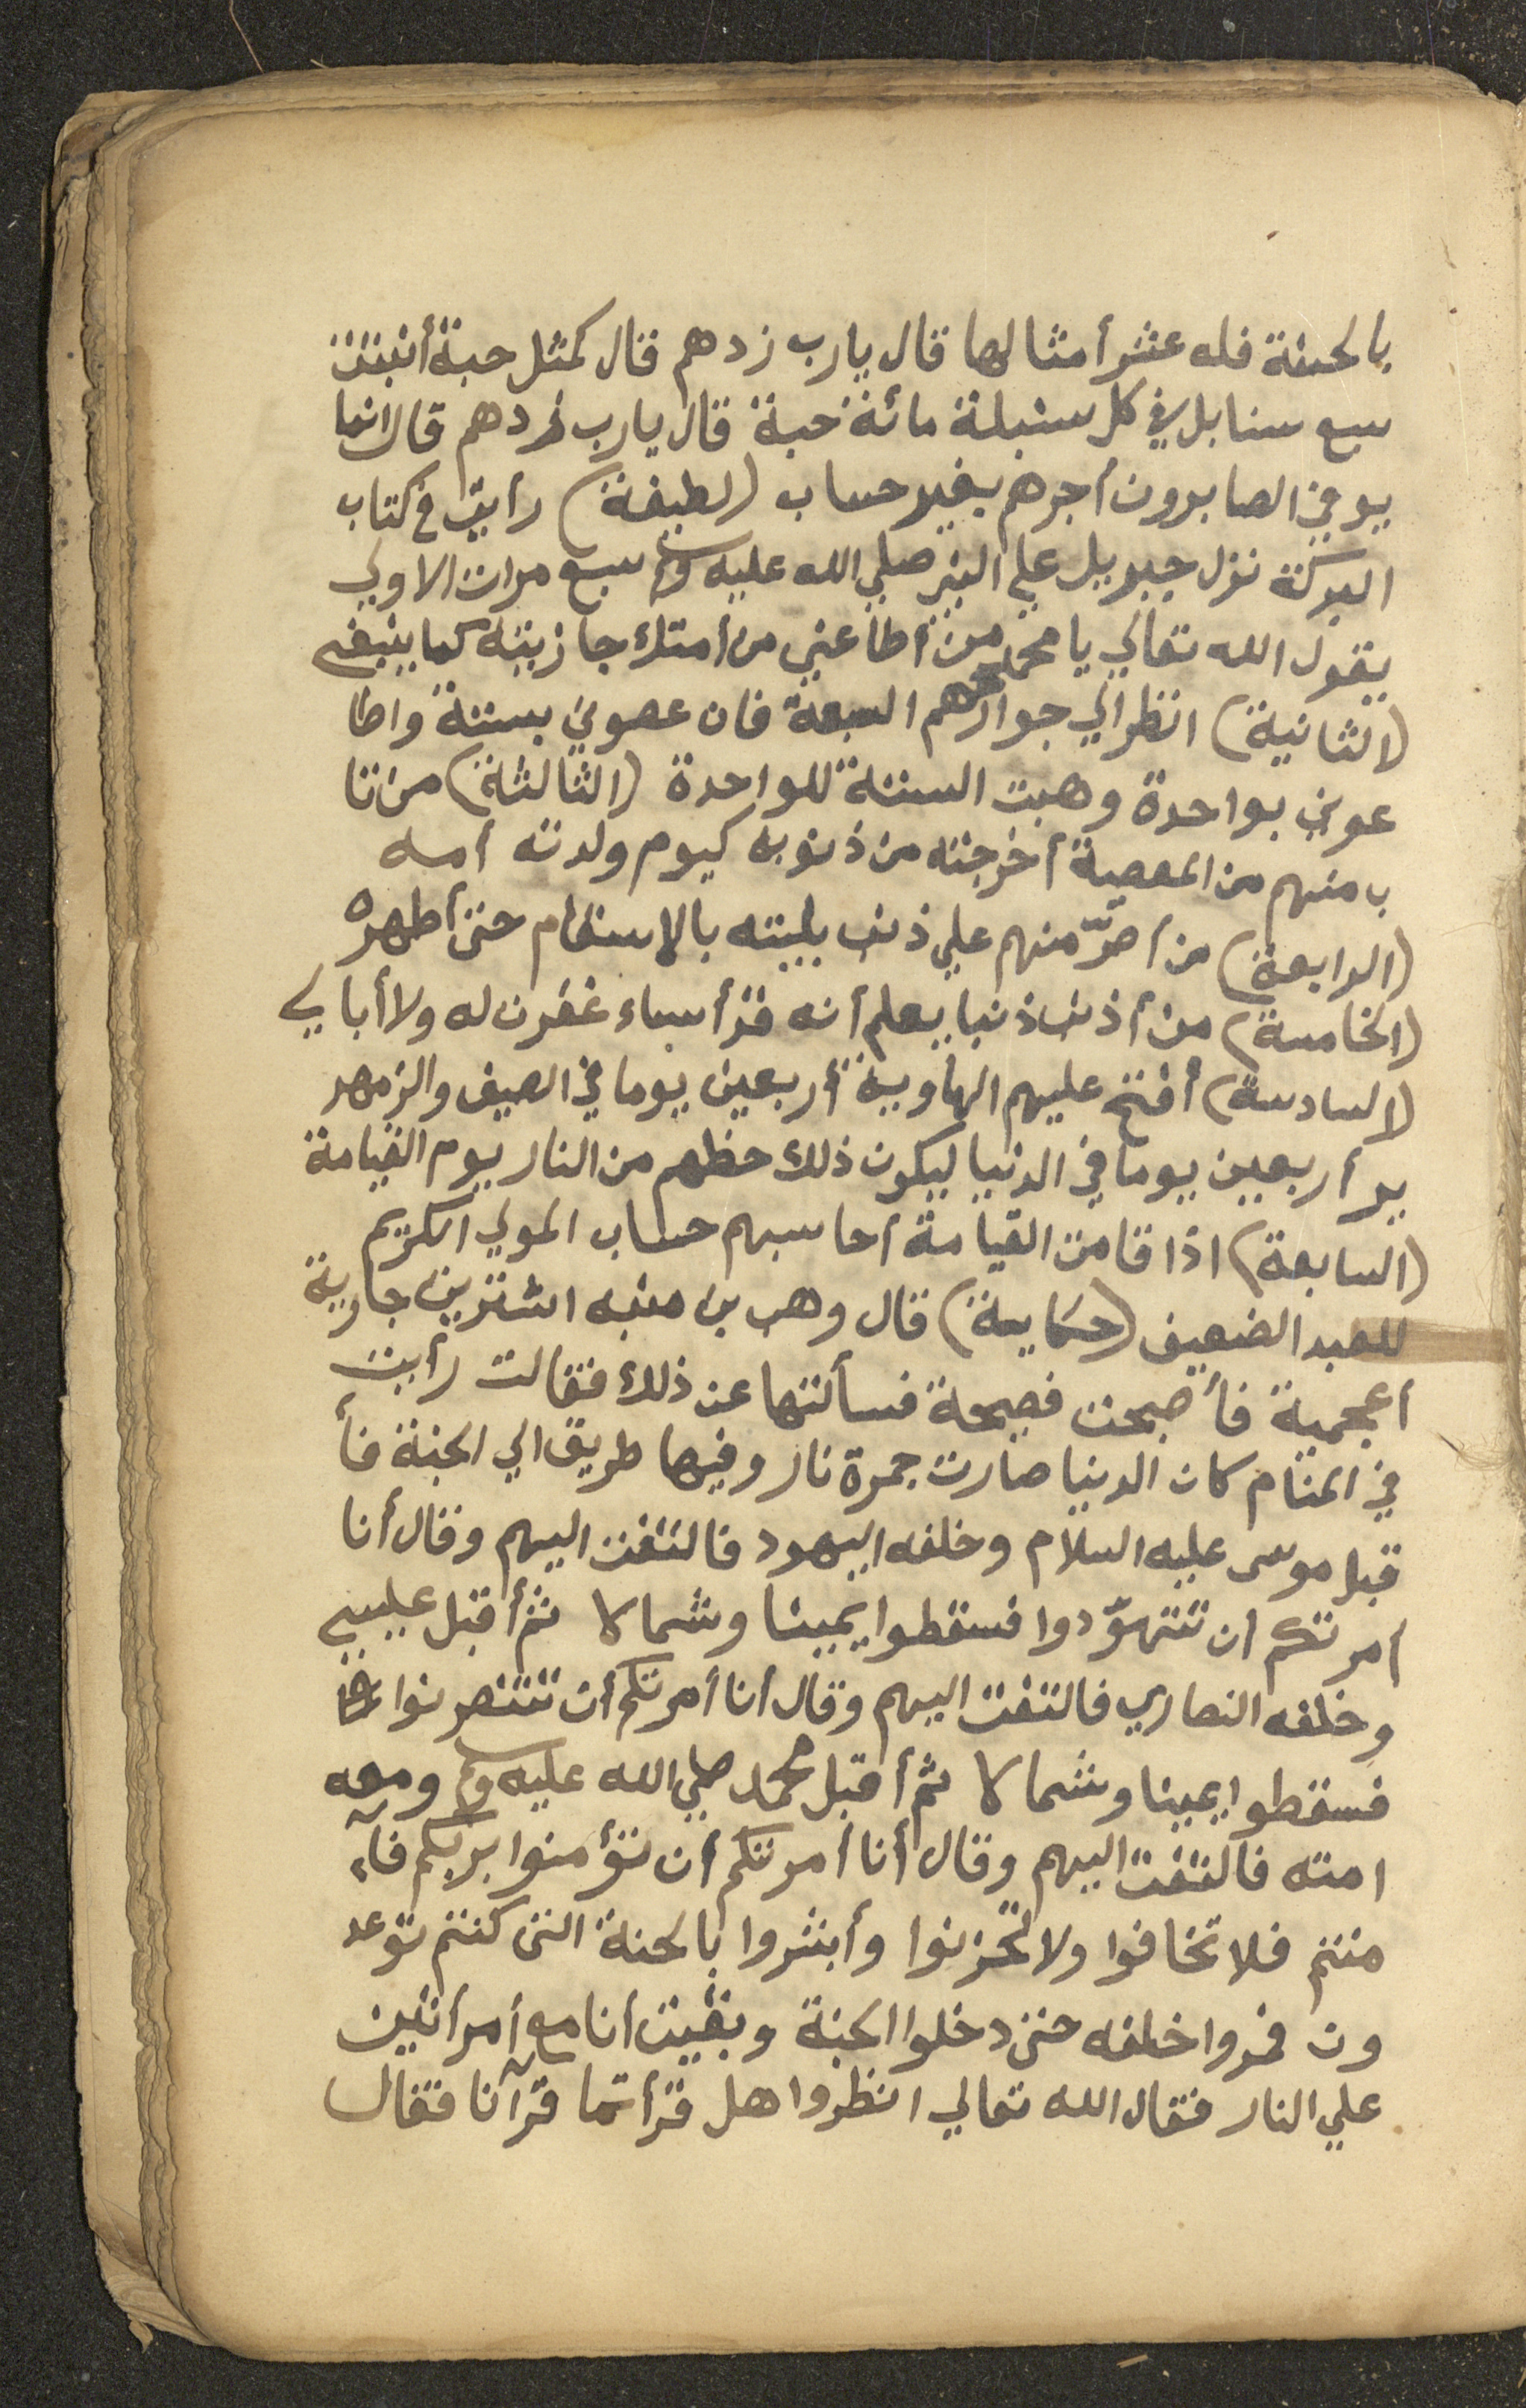 بالحسنة فله عشر أمثالها قال يارب زدهم قال كمثل حبة أنبتت
سبع سنابل في كل سنبلة مائة حبة قال يارب زدهم قال انما
يوفي الصابرون أجرهم بغير حساب (لطيفة) رأيت في كتاب
البركة نزل جبريل علي النبي صلي الله عليه وسلم سبع مرات الاولي
يقول الله تعالي يا محمد من أطاعني من أمتك جازيته كما ينبغي
(الثانية) انظر الي جوارحهم السبعة فان عصوني بستة واطا
عوني بواحدة وهبت الستة للواحدة (الثالثة) من تا
ب منهم من المعصية أخرجته من ذنوبه كيوم ولدته أمه
(الرابعة) من أصرّ منهم علي ذنب بليته بالاسقام حتى أطهره
(الخامسة) من أذنب ذنبا يعلم أنه قد أساء غفرت له ولا أبالي
(السادسة) أفتح عليهم الهاوية أربعين يوما في الصيف والزمهر
ير أربعين يوما في الدنيا ليكون ذلك حظهم من النار يوم القيامة
(السابعة) اذا قامت القيامة أحاسبهم حساب المولي الكريم
للعبد الضعيف (حكاية) قال وهب بن منبه اشتريت جارية
أعجمية فأصبحت فصيحة فسألتها عن ذلك فقالت رأيت
في المنام كان الدنيا صارت جمرة نار وفيها طريق الي الجنة فأ
قبل موسى عليه السلام وخلفه اليهود فالتفت اليهم وقال أنا
أمرتكم ان تتهوّدوا فسقطوا يمينا وشمالا ثم أقبل عيسي
وخلفه النصاري فالتفت اليهم وقال أنا أمرتكم أن تتنصرنوا
فسقطوا يمينا وشمالا ثم أقبل محمد صلي الله عليه وسلم ومعه
امته فالتفت اليهم وقال أنا أمرتكم أن تؤمنوا بربكم فآ
منتم فلا تخافوا ولا تحزنوا وأبشروا بالجنة التى كنتم توعد
ون فمروا خلفه حتى دخلوا الجنة وبقيت أنا مع أمرأتين
علي النار فقال الله تعالي انظروا هل قرأتما قرآنا فقال